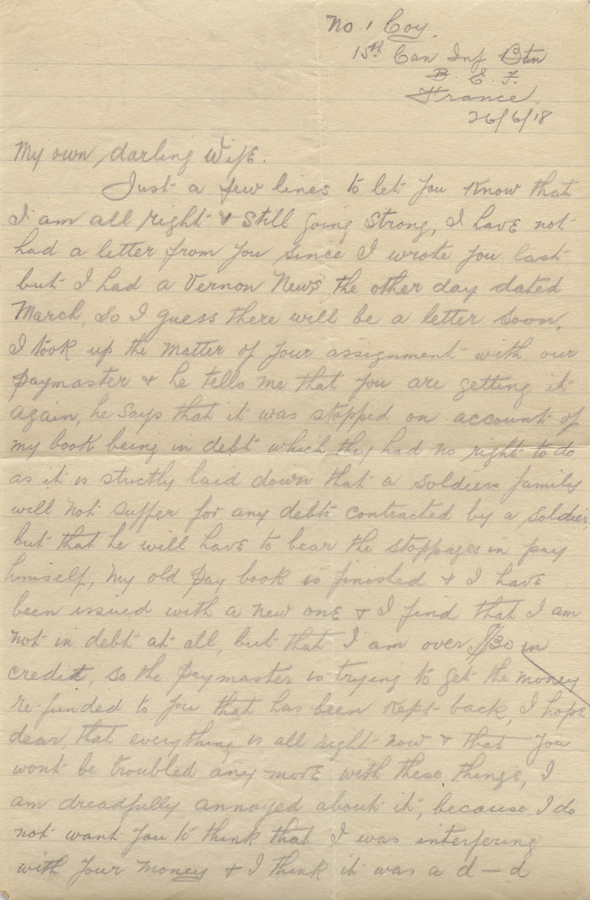 No 1 Coy.
15th Can Inf Btn
B. E. F.
France.
26/6/18
My own darling Wife.
Just a few lines to let you know that
I am all right & still going strong, I have not
had a letter from you since I wrote you last
but I had a Vernon News the other day dated
March, so I guess there will be a letter soon,
I took up the matter of your assignment with our
Paymaster & he tells me that you are getting it
again, he says that it was stopped on account of
my book being in debt which they had no right to do
as it is strictly laid down that a soldiers family
will not suffer for any debts contracted by a soldier,
but that he will have to bear the stoppages in pay
himself, My old pay book is finished & I have
been issued with a new one & I find that I am
not in debt at all, but that I am over $30 in
credit, so the Paymaster is trying to get the money
re-funded to you that has been kept back, I hope
dear, that everything is all right now & that you
wont be troubled any more with these things, I
am dreadfully annoyed about it, because I do
not want you to think that I was interfering
with your money & I think it was a d—d